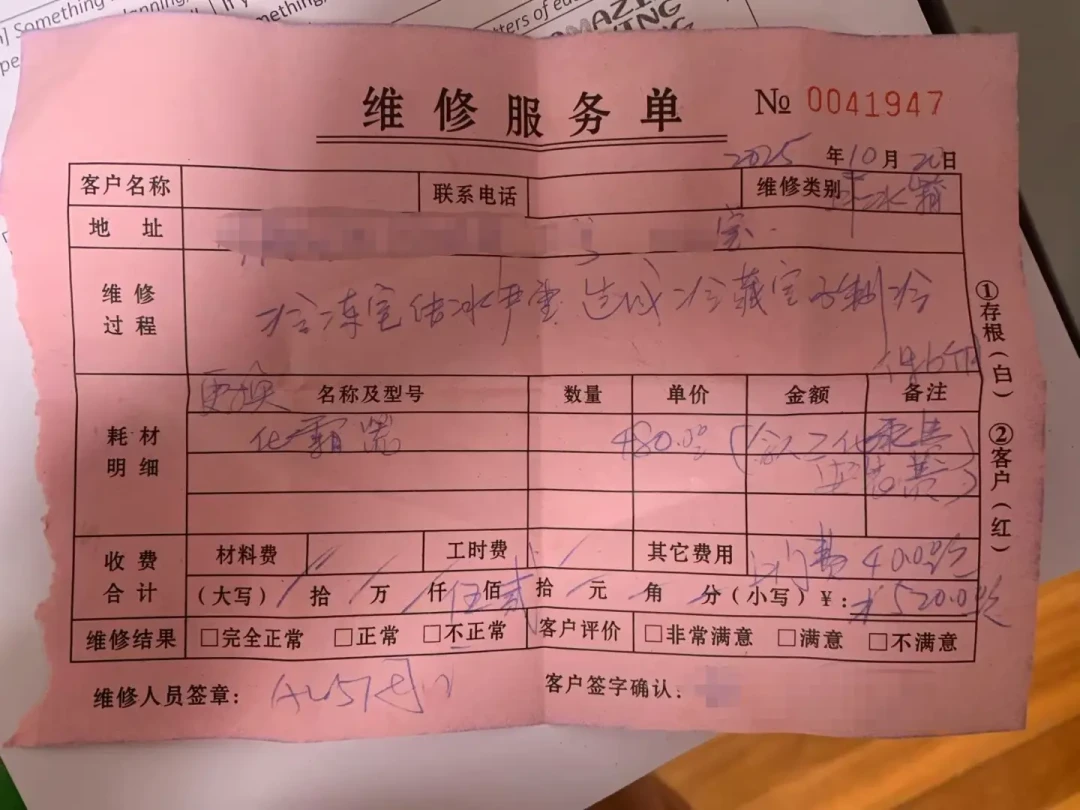 Something
ters of ed
维修服务单 № 0041947
2025 年 10 月 20 日
客户名称 联系电话 维修类别 冰箱
地 址 室
维修过程 冷冻室结冰严重 造成冷藏室不制冷
更换 名称及型号 数量 单价 金额 备注
耗材明细 化霜器 480.00
收费合计 材料费 工时费 其它费用 上门费 40.00元
(大写) 拾 万 仟 伍 佰 贰 拾 元 角 分 (小写) ¥: ¥520.00元
维修结果 □完全正常 □正常 □不正常 客户评价 □非常满意 □满意 □不满意
维修人员签章: 客户签字确认:
①存根(白) ②客户(红)